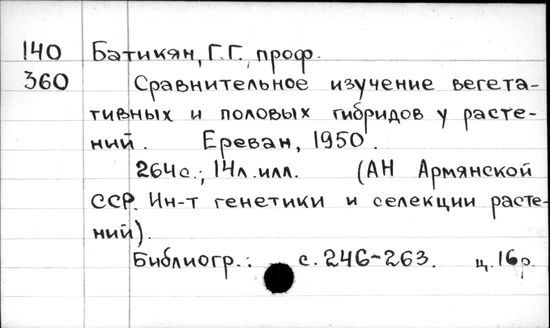 140 Батикян, Г.Г., проф.
360 Сравнительное изучение вегета-
тивных и половых гибридов у расте-
ний. Ереван, 1950.
264с.; 14л.илл. (АН Армянской
ССР. Ин-т генетики и селекции расте-
ний).
Библиогр.: с. 246-263. ц. 16р.